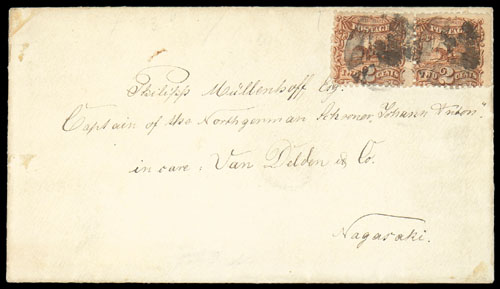 POSTAGE POSTAGE
Philipp Müllenhoff Esq.
Captain of the Northgerman Schooner „Johann Anton"
in care: Van Delden & Co.
Nagasaki.